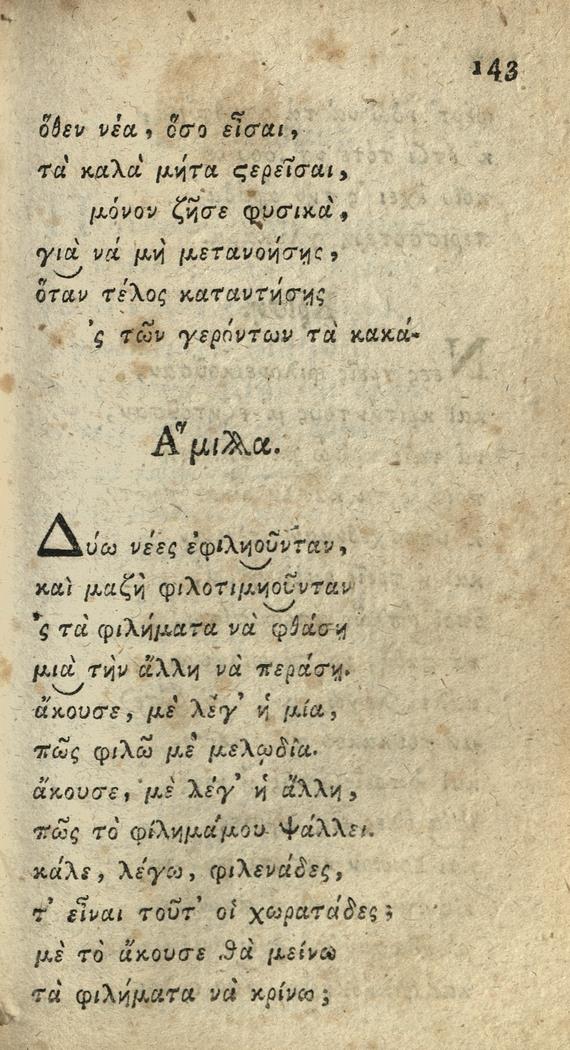 143
ὅθεν νέα, ὅσο εἶσαι,
τὰ καλὰ μήτα ςερεῖσαι,
μόνον ζῆσε φυσικὰ,
γιὰ νά μὴ μετανοήσῃς,
ὅταν τέλος καταντήσῃς
'ς τῶν γερόντων τὰ κακά.
Ἅμιλλα.
Δύω νέες ἐφιληοῦνταν,
καὶ μαζὴ φιλοτιμηοῦνταν
'ς τὰ φιλήματα νὰ φθάσῃ
μιὰ τὴν ἄλλη νὰ περάσῃ.
ἄκουσε, μὲ λέγ' ἡ μία,
πῶς φιλῶ μὲ μελῳδία.
ἄκουσε, μὲ λέγ' ἡ ἄλλη,
πῶς τὸ φίλημάμου ψάλλει.
κάλε, λέγω, φιλενάδες,
τ' εἶναι τοῦτ' οἱ χωρατάδες;
μὲ τὸ ἄκουσε θὰ μείνω
τὰ φιλήματα νὰ κρίνω;